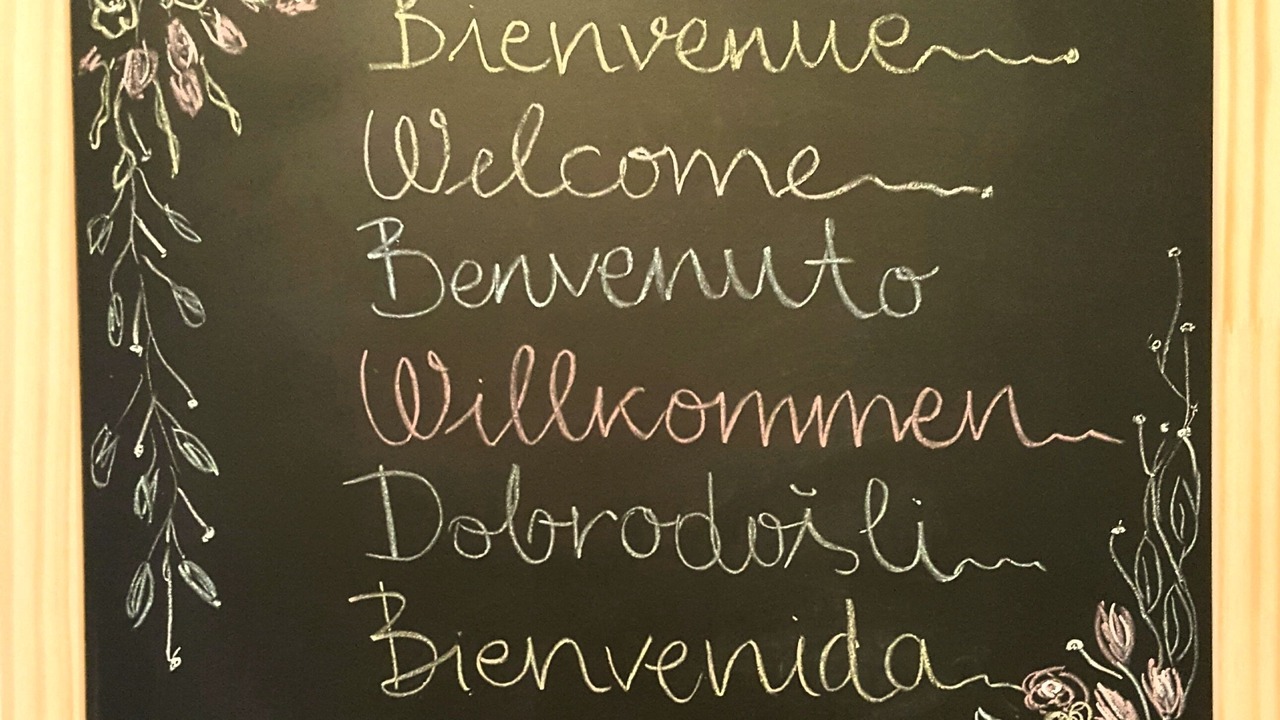 Bienvenue
Welcome
Benvenuto
Willkommen
Dobrodošli
Bienvenida